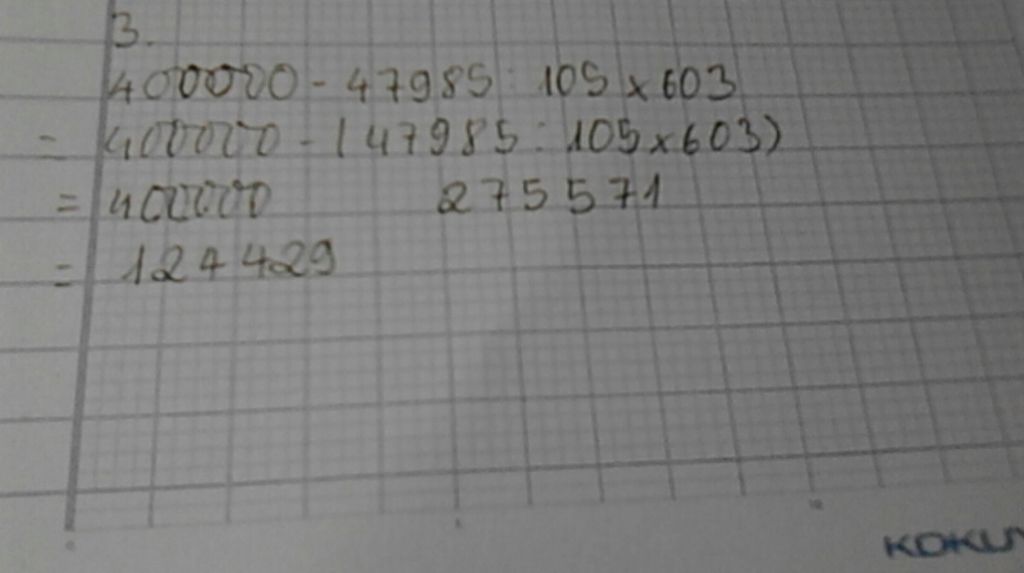 3.
400000 - 47985 : 105 x 603
= 400000 - (47985 : 105 x 603)
= 400000 275571
= 124429
KOKUY